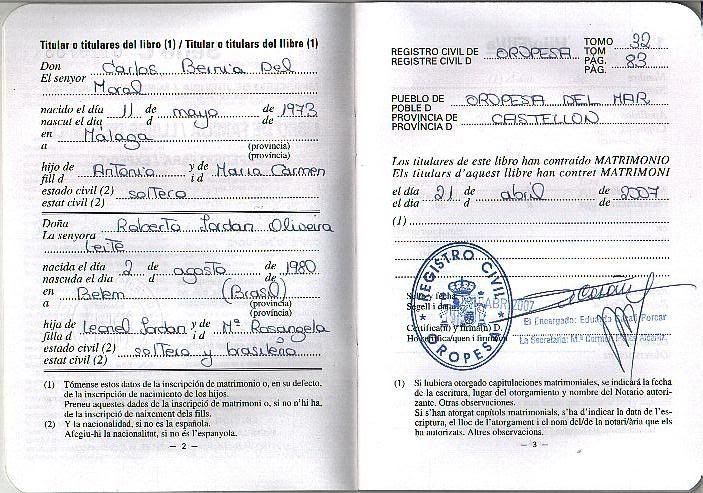 Titular o titulares del libro (1) / Titular o titulars del llibre (1)
Don Carlos Bernia Del
El senyor
Moral
nacido el día 11 de mayo de 1973
nascut el dia d de
en Málaga (provincia)
a (província)
hijo de Antonio y de Maria Carmen
fill d i d
estado civil (2) soltero
estat civil (2)
Doña Roberta Jordan Oliveira
La senyora
Leite
nacida el día 2 de agosto de 1980
nascuda el dia d de
en Belem (Brasil) (provincia)
a (província)
hija de Leonel Jordan y de Mª Rosangela
filla d i d
estado civil (2) soltera y brasileña
estat civil (2)
(1) Tómense estos datos de la inscripción de matrimonio o, en su defecto,
de la inscripción de nacimiento de los hijos.
Preneu aquestes dades de la inscripció de matrimoni o, si no n'hi ha,
de la inscripció de naixement dels fills.
(2) Y la nacionalidad, si no es la española.
Afegiu-hi la nacionalitat, si no és l'espanyola.
— 2 —
REGISTRO CIVIL DE OROPESA TOMO 32
REGISTRE CIVIL D TOM
PÁG. 83
PÀG.
PUEBLO DE OROPESA DEL MAR
POBLE D
PROVINCIA DE CASTELLON
PROVÍNCIA D
Los titulares de este libro han contraído MATRIMONIO
Els titulars d'aquest llibre han contret MATRIMONI
el día 21 de abril de 2007
el dia d de
(1)
REGISTRO CIVIL
OROPESA
Segell i data ABR 2007
Certifica(n) y firma(n) D.
El Encargado:
La Secretaria:
(1) Si hubiera otorgado capitulaciones matrimoniales, se indicará la fecha
de la escritura, lugar del otorgamiento y nombre del Notario autori-
zante. Otras observaciones.
Si s'han atorgat capítols matrimonials, s'ha d'indicar la data de l'es-
criptura, el lloc de l'atorgament i el nom del/de la notari/ària que els
ha autoritzats. Altres observacions.
— 3 —